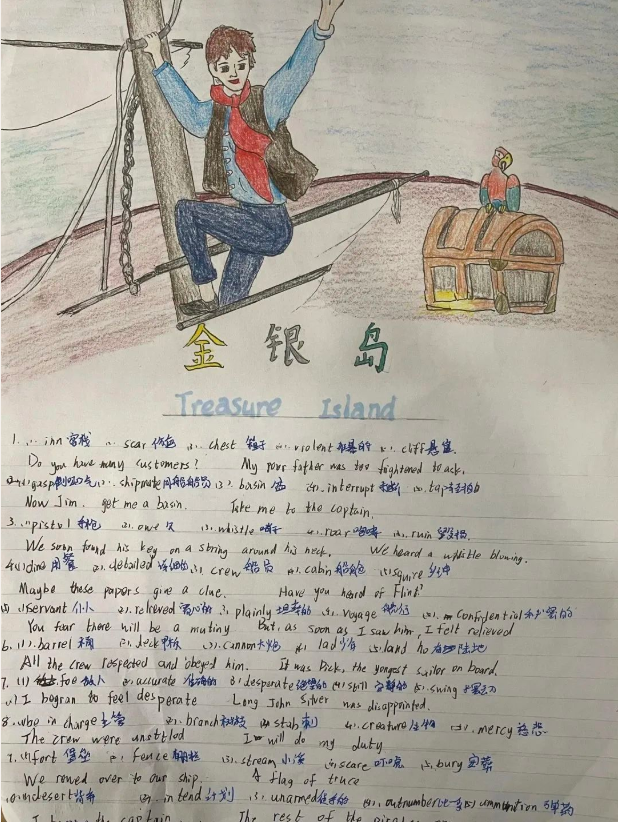 金银岛
Treasure Island
1. (1) inn 客栈 (2) scar 伤疤 (3) chest 箱子 (4) violent 的 (5) cliff 悬崖
Do you have many customers? My poor father was too frightened to ask.
gasp 倒吸口气 (2) shipmate 同船船员 (3) basin 盆 (4) interrupt 打断 (5) tap
Now Jim, get me a basin. Take me to the captain.
3. (1) pistol 手枪 (2) owe 欠 (3) whistle 哨子 (4) roar 咆哮 (5) ruin 毁损
We soon found his key on a string around his neck. We heard a whistle blowing.
4. (1) dine 用餐 (2) detailed 详细的 (3) crew 船员 (4) cabin 船舱 (5) squire 乡绅
Maybe these papers give a clue. Have you heard of Flint?
servant 仆人 (2) relieved (3) plainly 坦率的 (4) voyage 航行 (5) confidential 的
You fear there will be a mutiny But, as soon as I saw him, I felt relieved
6. (1) barrel 桶 (2) deck 甲板 (3) cannon 大炮 (4) lad 少年 (5) land ho 陆地
All the crew respected and obeyed him. It was Dick, the yongest sailor on board.
7. (1) foe 敌人 (2) accurate 准确的 (3) desperate 绝望的 (4) still (5) swing
I began to feel desperate Long John Silver was disappointed.
8. who in charge 主管 (2) branch 树枝 (3) stab 刺 (4) creature 生物 (5) mercy 慈悲
The crew were unsttled I will do my duty
(1) fort 堡垒 (2) fence 栅栏 (3) stream 小溪 (4) scare 吓 (5) bury
We rowed over to our ship. A flag of truce
desert (2) intend 计划 (3) unarmed (4) outnumber (5) 弹药
the captain The rest of the